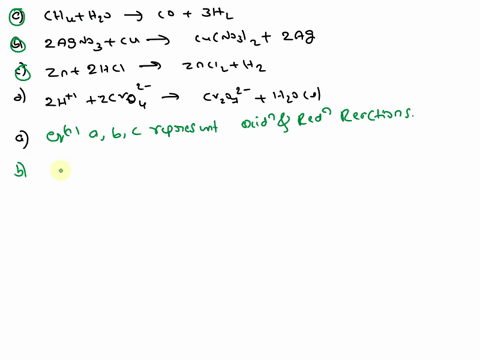 a) CH4 + H2O → CO + 3H2
b) 2AgNO3 + Cu → Cu(NO3)2 + 2Ag
c) Zn + 2HCl → ZnCl2 + H2
d) 2H+ + 2CrO4^2- → Cr2O7^2- + H2O(l)
a) eqn a, b, c represent Oxidn & Redn Reactions.
b)